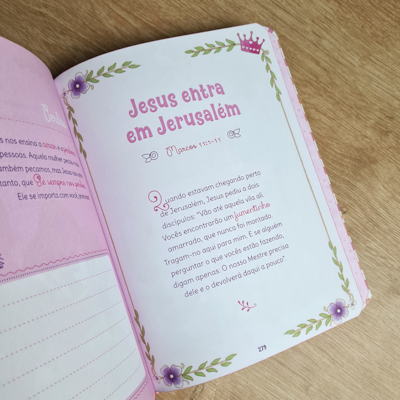 s nos ensina a amar e
pessoas. Aquela mulher pe
também pecamos, mas Jesus
tanto, que
Ele se importa com você,
Jesus entra
em Jerusalém
Marcos 11:1-11
Quando estavam chegando perto
de Jerusalém, Jesus pediu a dois
discípulos: "Vão até aquela vila ali.
Vocês encontrarão um jumentinho
amarrado, que nunca foi montado.
Tragam-no aqui para mim. E se alguém
perguntar o que vocês estão fazendo,
digam apenas: O nosso Mestre precisa
dele e o devolverá daqui a pouco".
279